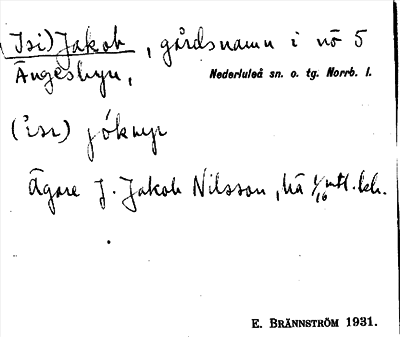 (Isi)Jakob, gårdsnamn i nö 5
Ängesbyn,
Nederluleå sn. o. tg. Norrb. l.
(ɩ̀sɩ) jóknyp
Ägare J. Jakob Nilsson, nå mtl.
E. BRÄNNSTRÖM 1931.